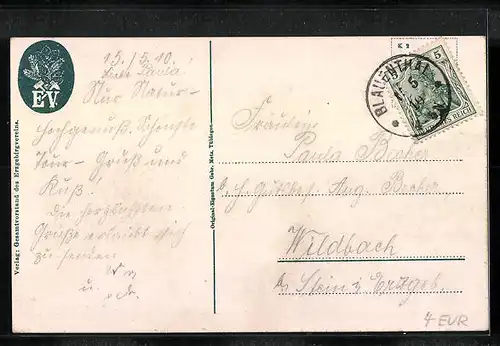 15./5.10.
Liebe Paula!
Nur Natur-
hochgenuß. Schönste
Tour - Gruß und
Kuß!
Die herzlichsten
Grüße erlaubt sich
zu senden
u.
EV.
Verlag: Gesamtvorstand des Erzgebirgsvereins.
Original-Eigentum Gebr. Metz, Tübingen.
K 2
5
BLAUENTHAL
DEUTSCHES REICH
Fräulein
Paula
Aug.
Wildbach
Stein i. Erzgeb.
4 EUR